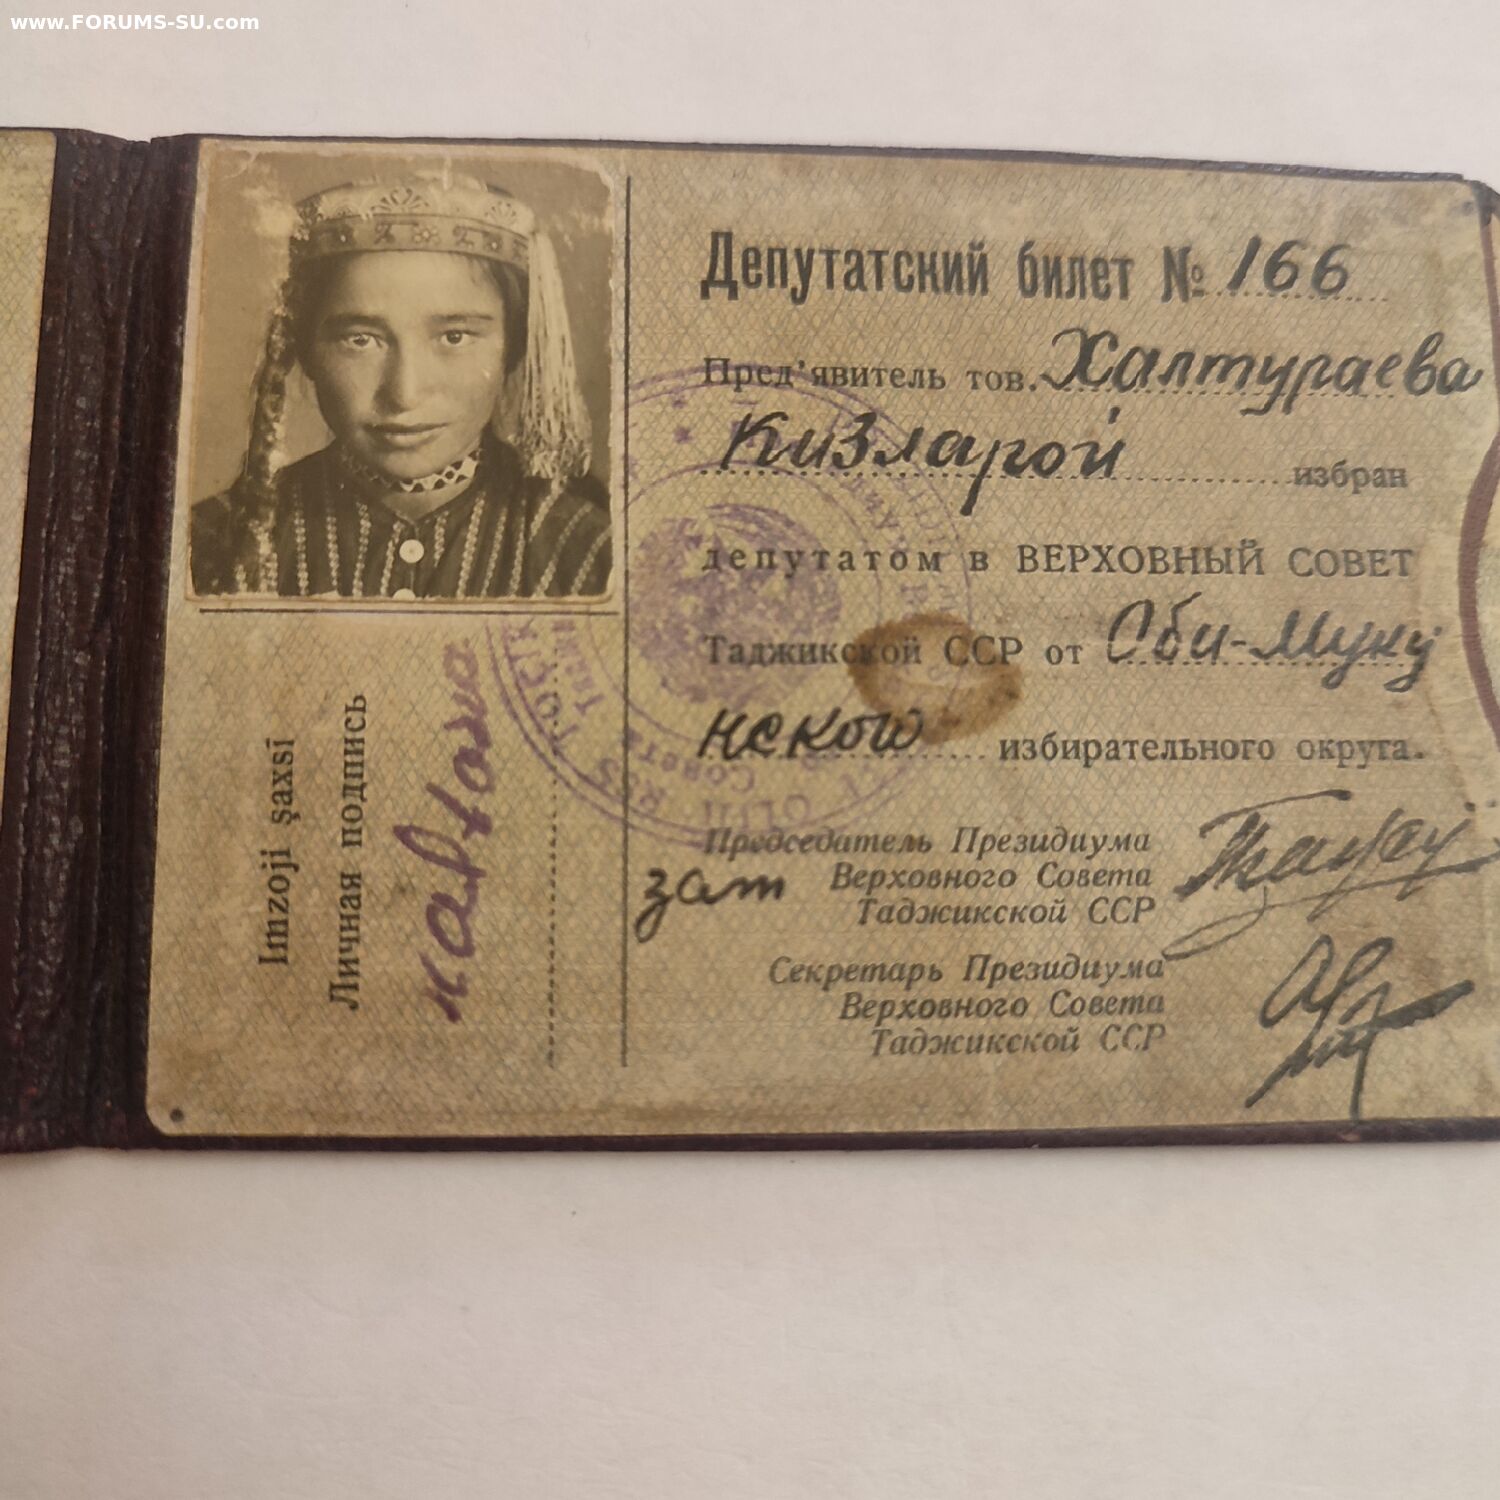 www.FORUMS-SU.com
Депутатский билет № 166
Пред'явитель тов. Халтураева
Кизларой избран
депутатом в ВЕРХОВНЫЙ СОВЕТ
Таджикской ССР от Оби-Муку
нского избирательного округа.
Председатель Президиума
зам Верховного Совета
Таджикской ССР
Секретарь Президиума
Верховного Совета
Таджикской ССР
Imzoji şaxsī
Личная подпись